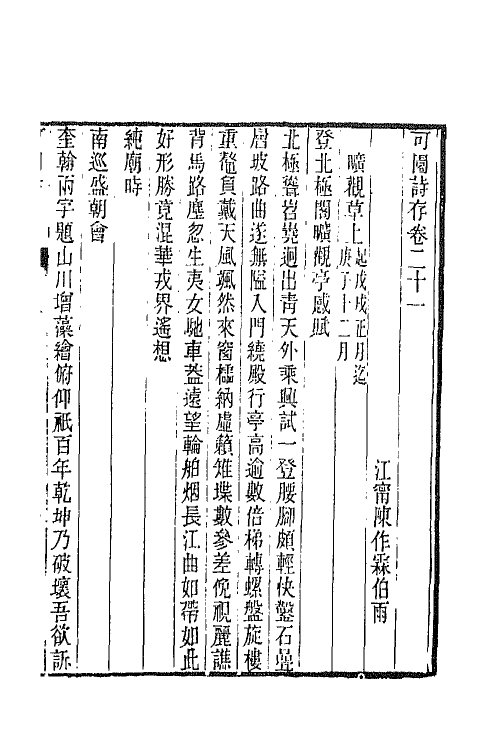 可園詩存卷二十一
江甯陳作霖伯雨
曠觀草上 起戊戌正月迄
庚子十二月
登北極閣曠觀亭感賦
北極聳岧嶤迥出青天外乘興試一登腰腳頗輕快鑿石疊
層坡路曲遂無隘入門繞殿行亭高逾數倍梯轉螺盤旋樓
重鼇負戴天風颯然來窗櫺納虛籟雉堞數參差俛視麗譙
背馬路塵忽生夷女馳車蓋遠望輪船烟長江曲如帶如此
好形勝竟混華戎界遙想
純廟時
南巡盛朝會
奎翰兩字題山川增藻繪俯仰祇百年乾坤乃破壞吾欲訴